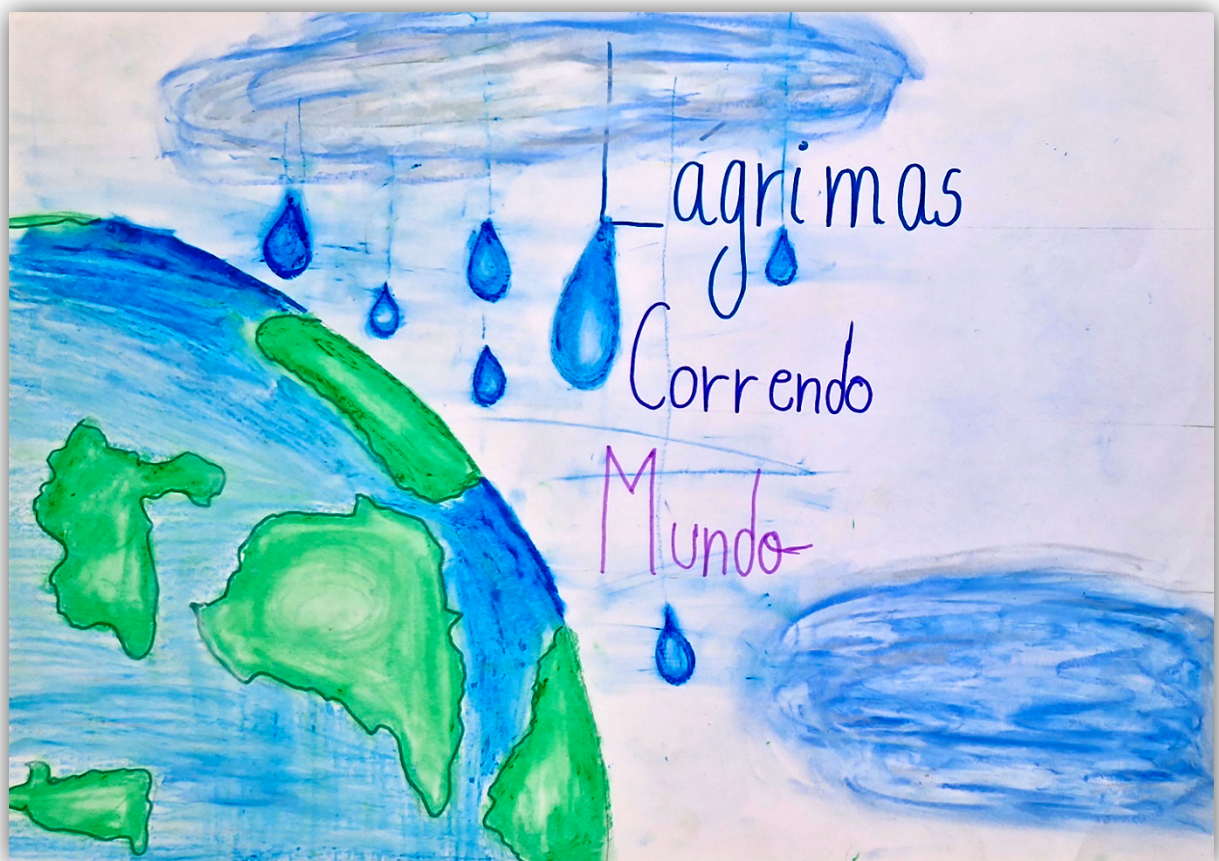 Lágrimas
Correndo
Mundo